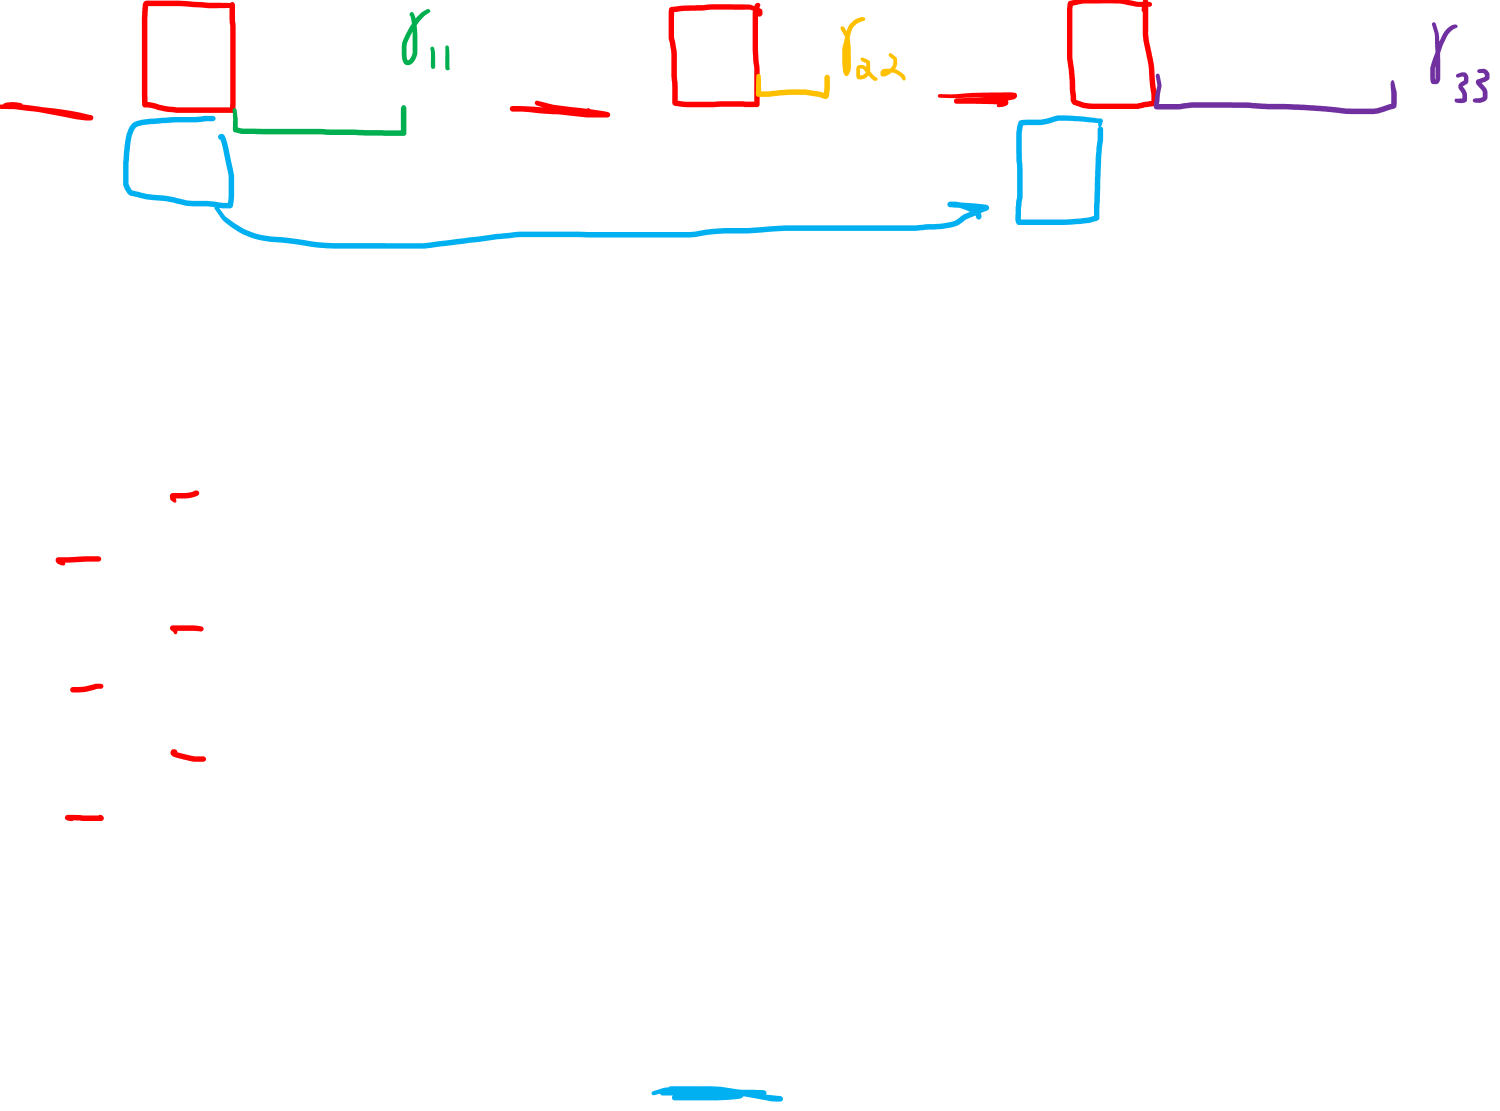 γ₁₁ γ₂₂ γ₃₃